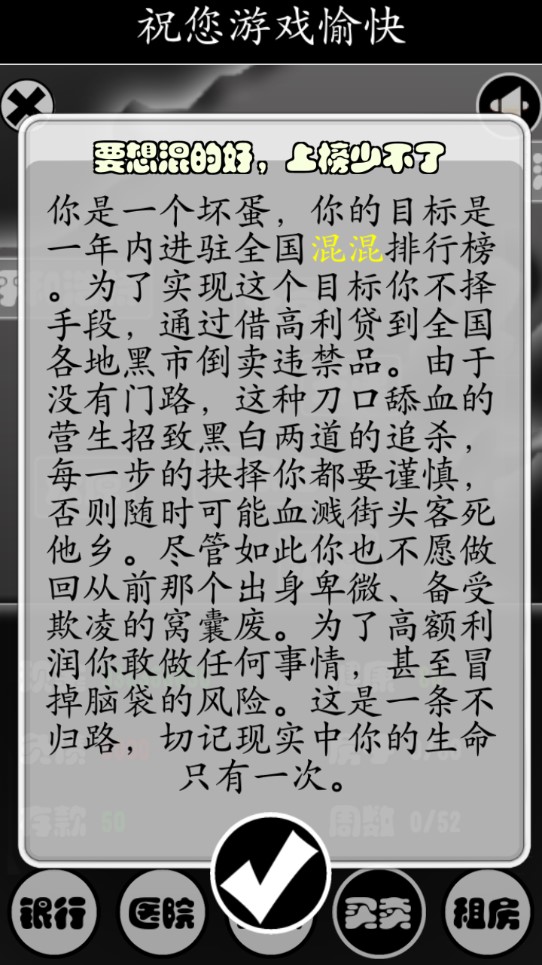 祝您游戏愉快
要想混的好，上榜少不了
你是一个坏蛋，你的目标是
一年内进驻全国混混排行榜
。为了实现这个目标你不择
手段，通过借高利贷到全国
各地黑市倒卖违禁品。由于
没有门路，这种刀口舔血的
营生招致黑白两道的追杀，
每一步的抉择你都要谨慎，
否则随时可能血溅街头客死
他乡。尽管如此你也不愿做
回从前那个出身卑微、备受
欺凌的窝囊废。为了高额利
润你敢做任何事情，甚至冒
掉脑袋的风险。这是一条不
归路，切记现实中你的生命
只有一次。
存款 50 周数 0/52
银行 医院 买卖 租房